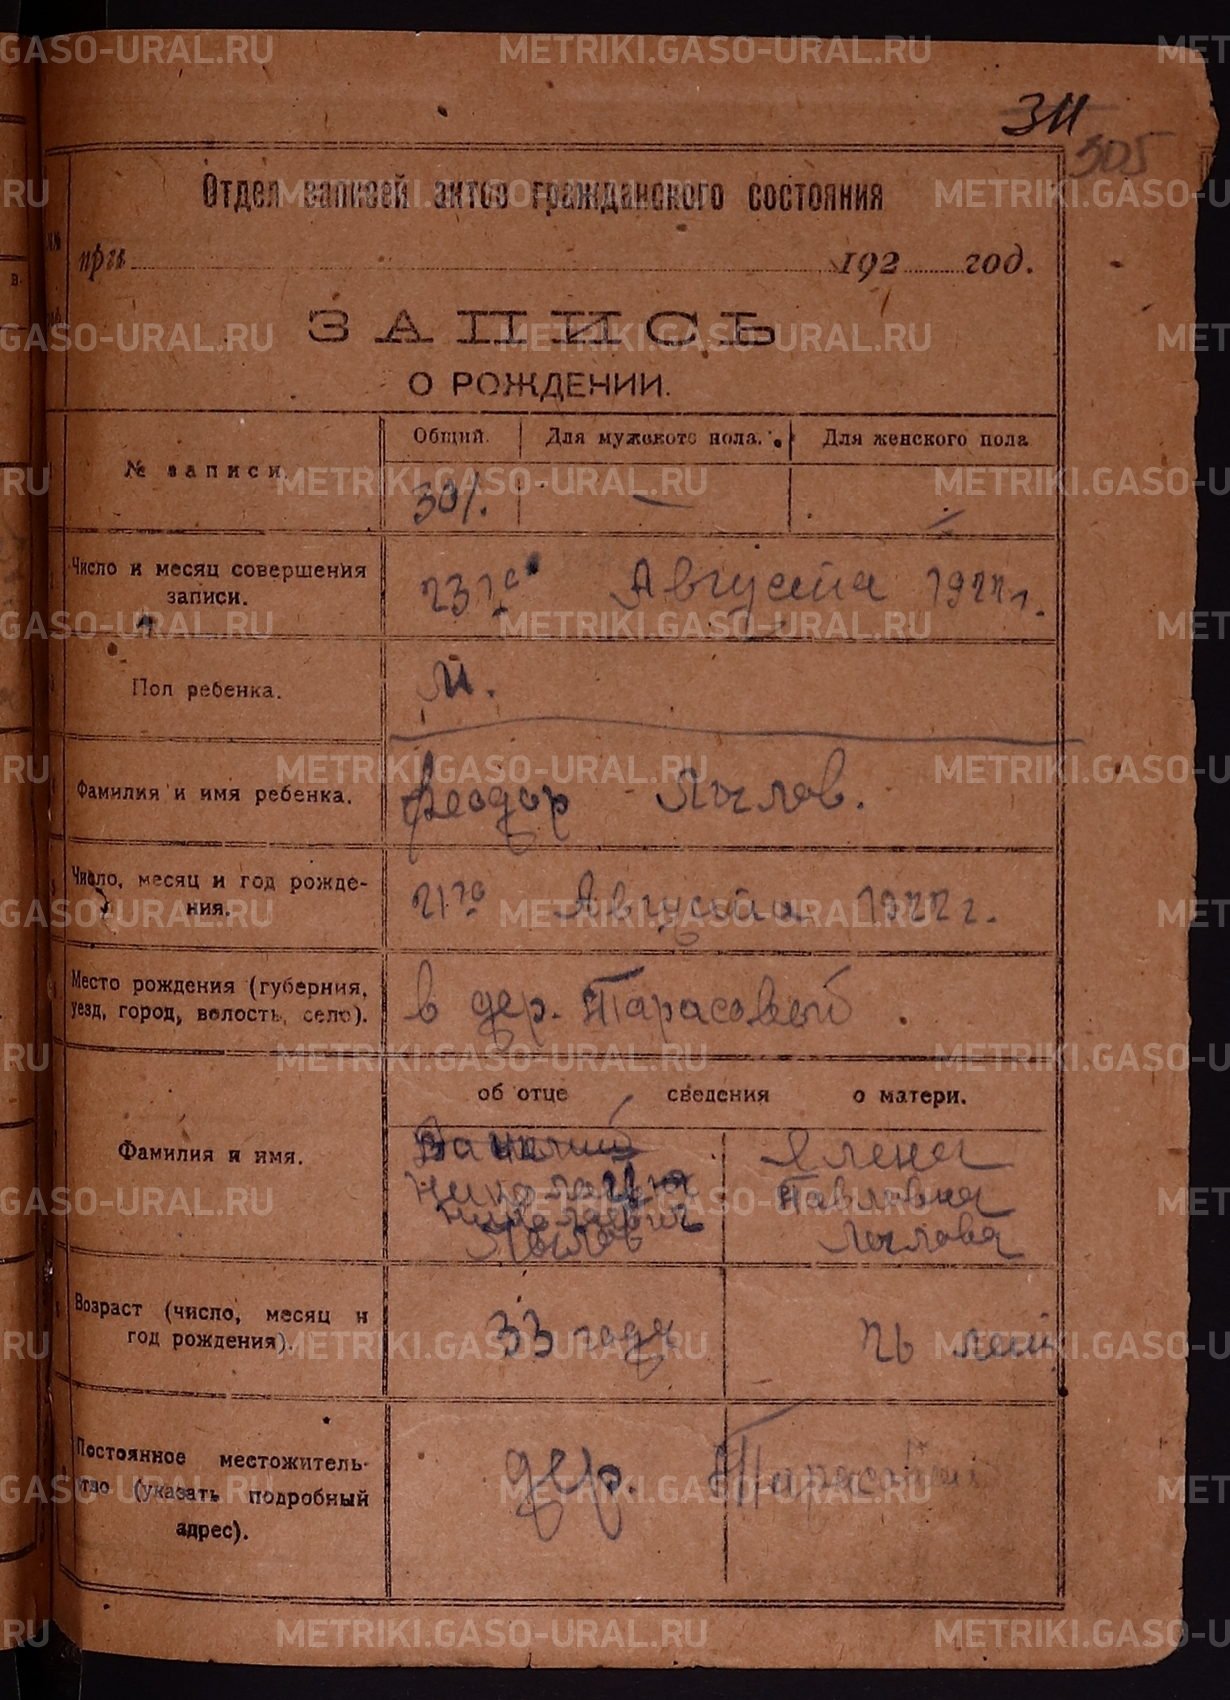 METRIKI.GASO-URAL.RU
311
305
Отдел записей актов гражданского состояния
при 192 год.
ЗАПИСЬ
О РОЖДЕНИИ.
№ записи.
Общий.
Для мужского пола.
Для женского пола
301.
—
—
Число и месяц совершения
записи.
23го Августа 1922 г.
Пол ребенка.
М.
Фамилия и имя ребенка.
Феодор Лычов.
Число, месяц и год рожде-
ния.
21го Августа 1922 г.
Место рождения (губерния,
уезд, город, волость, село).
в дер. Тарасовой.
об отце сведения о матери.
Фамилия и имя.
Николаевич
Елена
Павловна
Возраст (число, месяц и
год рождения).
33 года
26 лет
Постоянное местожитель-
ство (указать подробный
адрес).
дер.